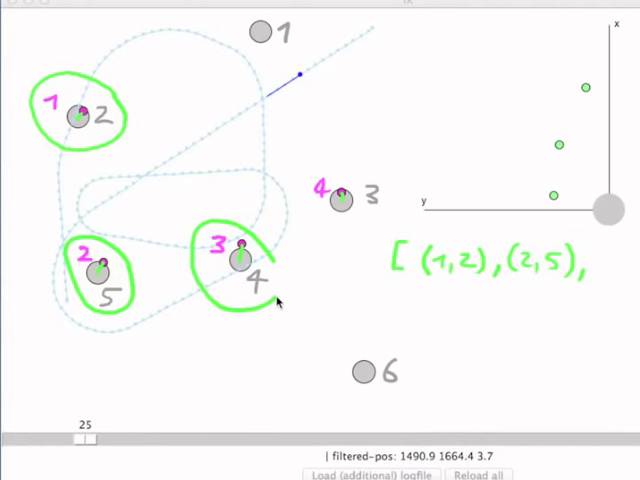 1
x
1 2
y
4 3
2 5
3 4
[ (1,2), (2,5),
6
25
| filtered-pos: 1490.9 1664.4 3.7
Load (additional) logfile Reload all